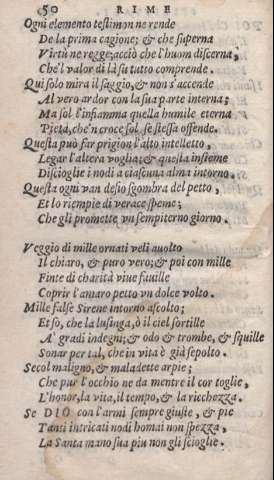 50 RIME
Ogni elemento testimon ne rende
De la prima cagione; & che superna
Virtù ne regge; acciò che l'huom discerna,
Che'l valor di là su tutto comprende.
Qui solo mira il saggio, & non s'accende
Al vero ardor con la sua parte interna;
Ma sol l'infiamma quella humile eterna
Pietà, che'n croce sol se stessa offende.
Questa può far prigion l'alto intelletto,
Legar l'altera voglia; & questa insieme
Discioglie i nodi a ciascuna alma intorno.
Questa ogni van desio sgombra del petto,
Et lo riempie di verace speme;
Che gli promette un sempiterno giorno.
Veggio di mille ornati veli avolto
Il chiaro, & puro vero; & poi con mille
Finte di charità vive faville
Coprir l'amaro petto vn dolce volto.
Mille false Sirene intorno ascolto;
Et sò, che la lusinga, ò il ciel sortille
A' gradi indegni; & odo & trombe, & squille
Sonar per tal, che in vita è già sepolto.
Secol maligno, & maladette arpie;
Che pur l'occhio ne da mentre il cor toglie,
L'honor, la vita, il tempo, & la ricchezza.
Se DIO con l'armi sempre giuste, & pie
Tanti intricati nodi homai non spezza,
La Santa mano sua piu non gli scioglie.